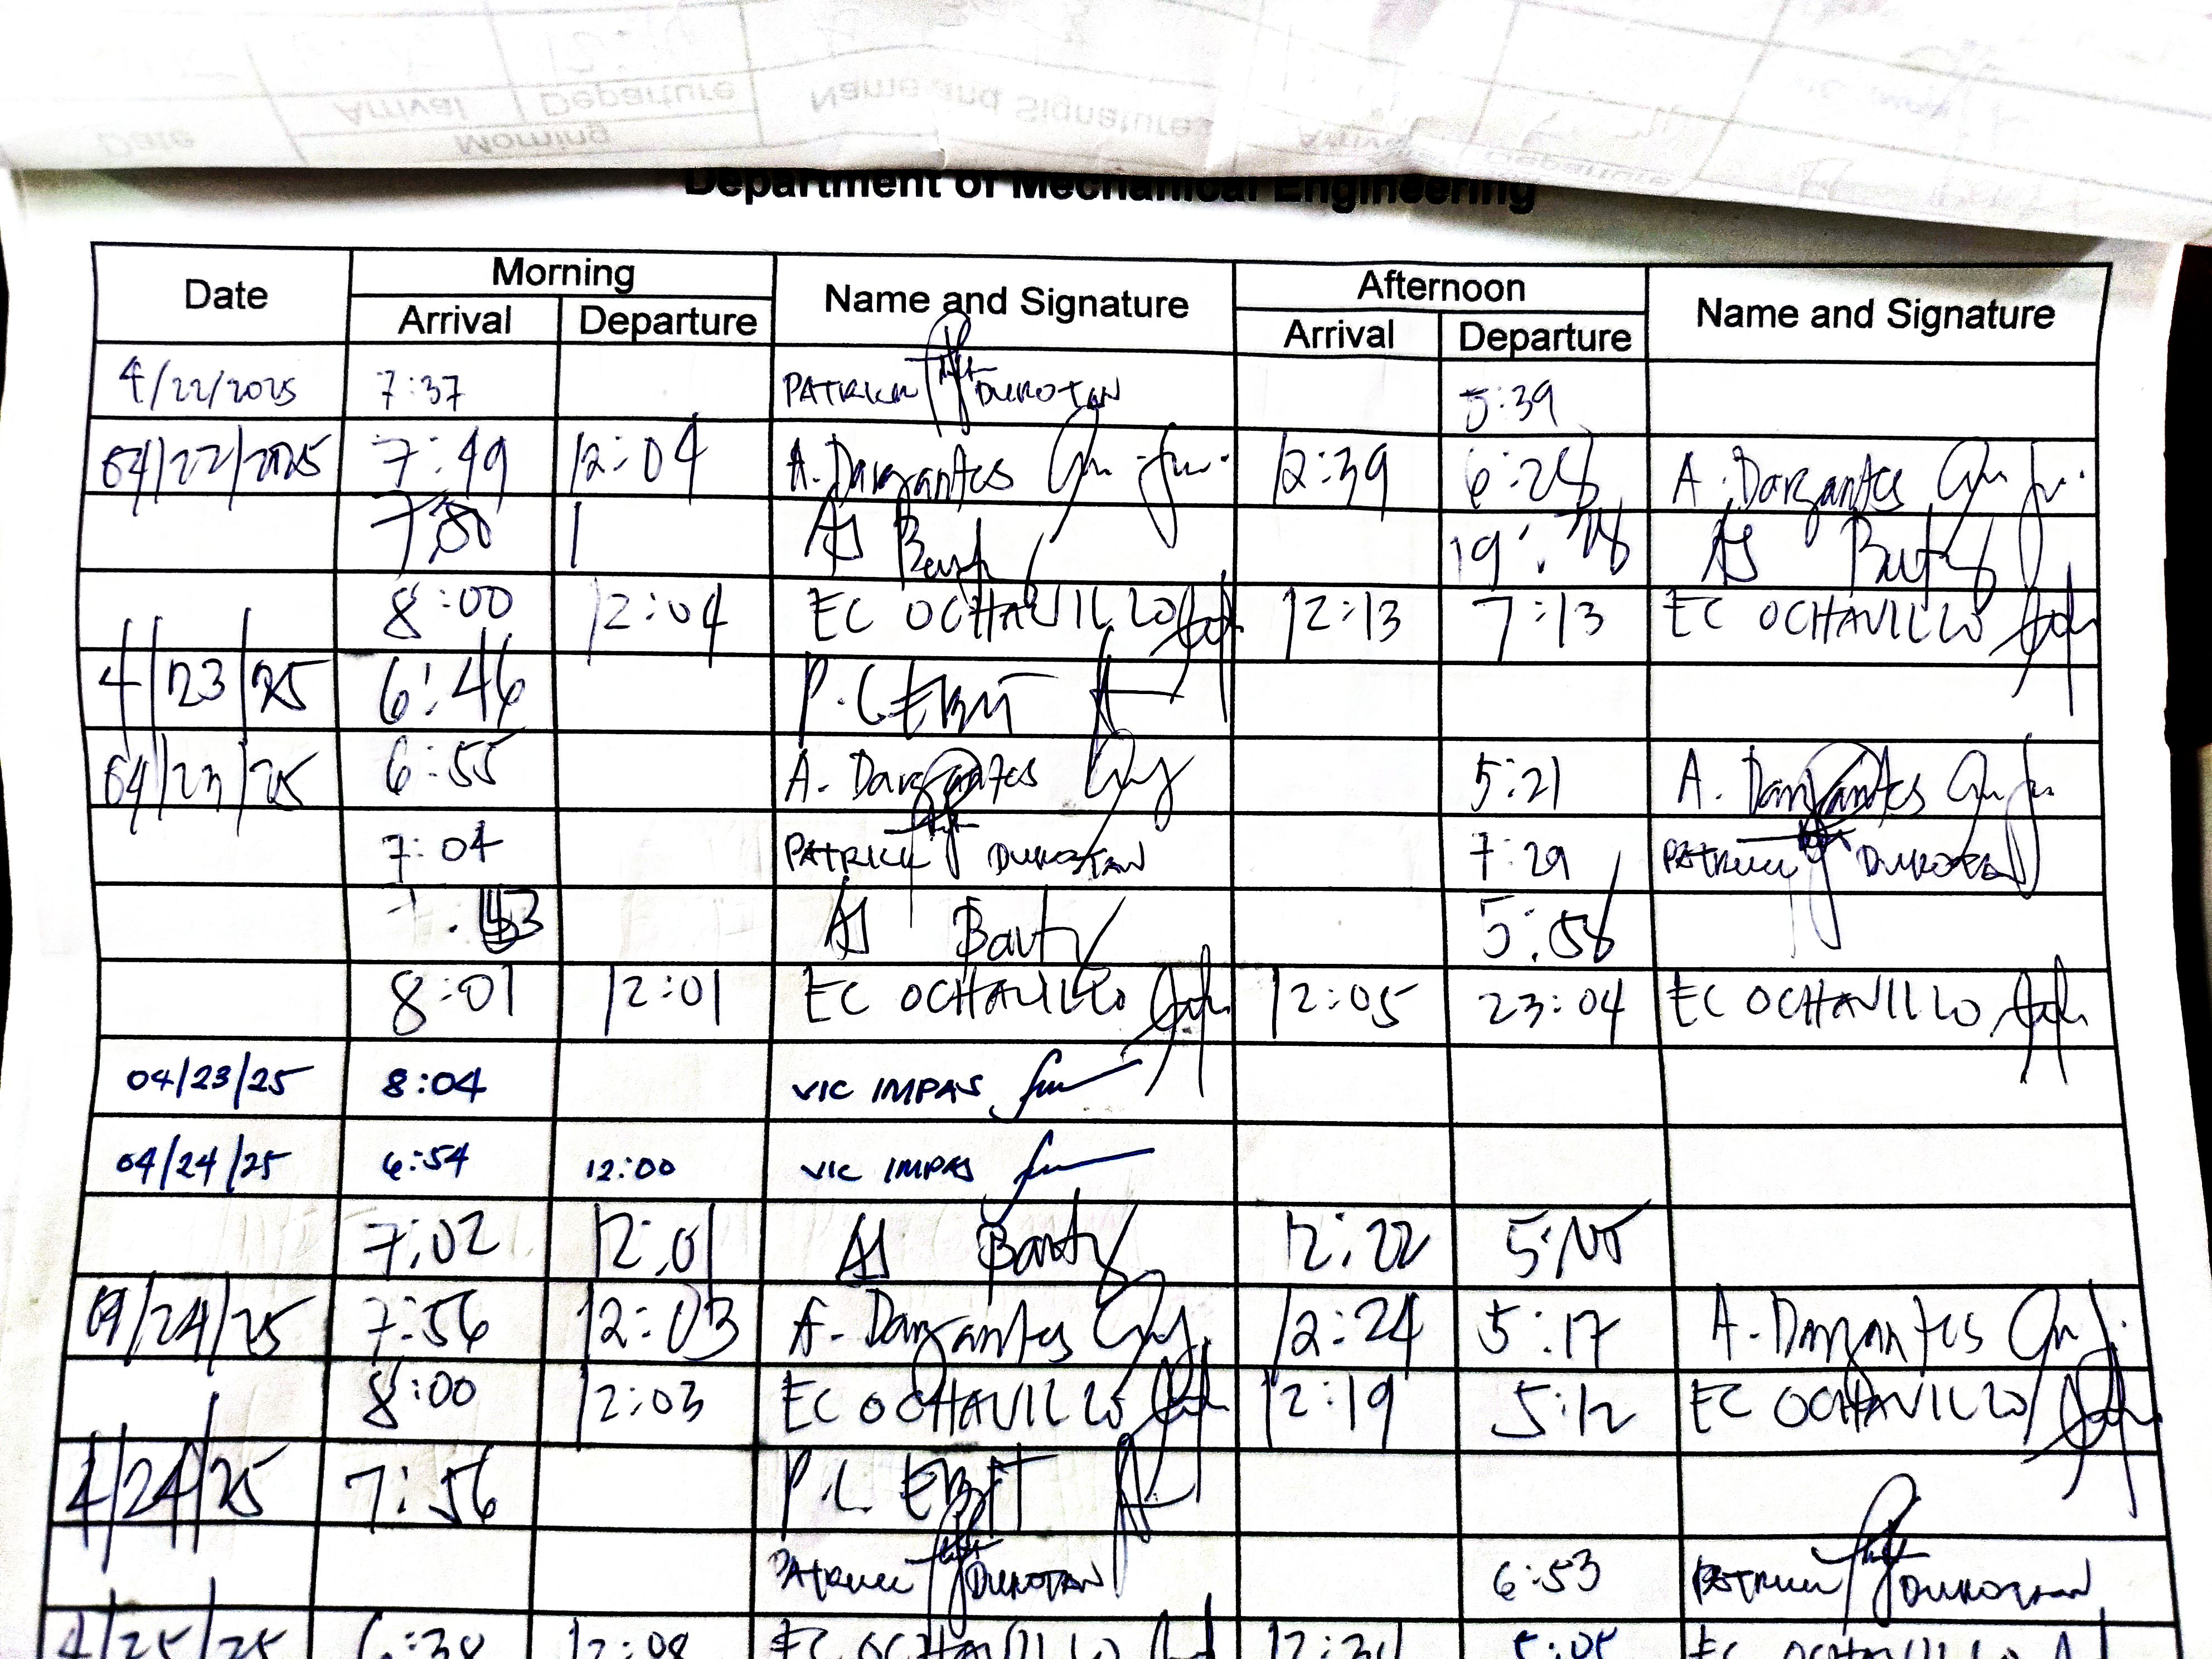 Department of Mechanical Engineering
Date Morning Name and Signature Afternoon Name and Signature
Arrival Departure Arrival Departure
4/22/2025 7:37 PATRICK DUROTAN 5:39
04/22/2025 7:49 12:04 A. Darzantes 12:39 6:28 A. Darzantes
AJ
8:00 12:04 EC OCHAVILLO 12:13 7:13 EC OCHAVILLO
4/23/25 6:46 P.
04/23/25 6:55 A. Darzantes 5:21 A. Darzantes
7:04 PATRICK DUROTAN 7:29 PATRICK DUROTAN
AJ 5:58
8:01 12:01 EC OCHAVILLO 12:05 23:04 EC OCHAVILLO
04/23/25 8:04 VIC IMPAS
04/24/25 6:54 12:00 VIC IMPAS
7:02 12:01 AJ 12:22 5:05
04/24/25 7:56 12:03 A. Darzantes 12:24 5:17 A. Darzantes
8:00 12:03 EC OCHAVILLO 12:19 5:12 EC OCHAVILLO
4/24/25 7:56 P.
PATRICK DUROTAN 6:53 PATRICK DUROTAN
4/25/25 6:38 12:08 EC OCHAVILLO 5:05 EC OCHAVILLO